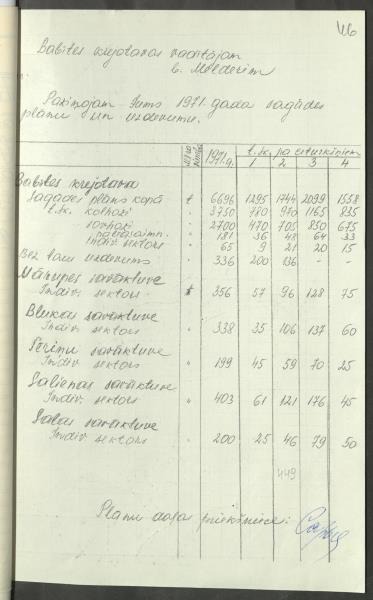 46
Babītes krejotavas vadītājam
b. Melderim
Paziņojam Jums 1971. gada sagādes
plānu un uzdevumu.
1971. g. t. sk. pa ceturkšņiem
1 2 3 4
Babītes krejotava
Sagādes plāns kopā t 6696 1295 1744 2099 1558
t. sk. kolhozi " 3750 780 970 1165 835
sovhozi " 2700 470 705 850 675
181 36 48 64 33
indiv. sektors 65 9 21 20 15
Bez tam uzdevums " 336 200 136 - -
Mārupes savāktuve
Indiv. sektors t 356 57 96 128 75
Blukas savāktuve
Indiv. sektors " 338 35 106 137 60
savāktuve
Indiv. sektors " 199 45 59 70 25
Salienas savāktuve
Indiv. sektors " 403 61 121 176 45
Salas savāktuve
Indiv. sektors " 200 25 46 79 50
449
Plānu daļas priekšniece: